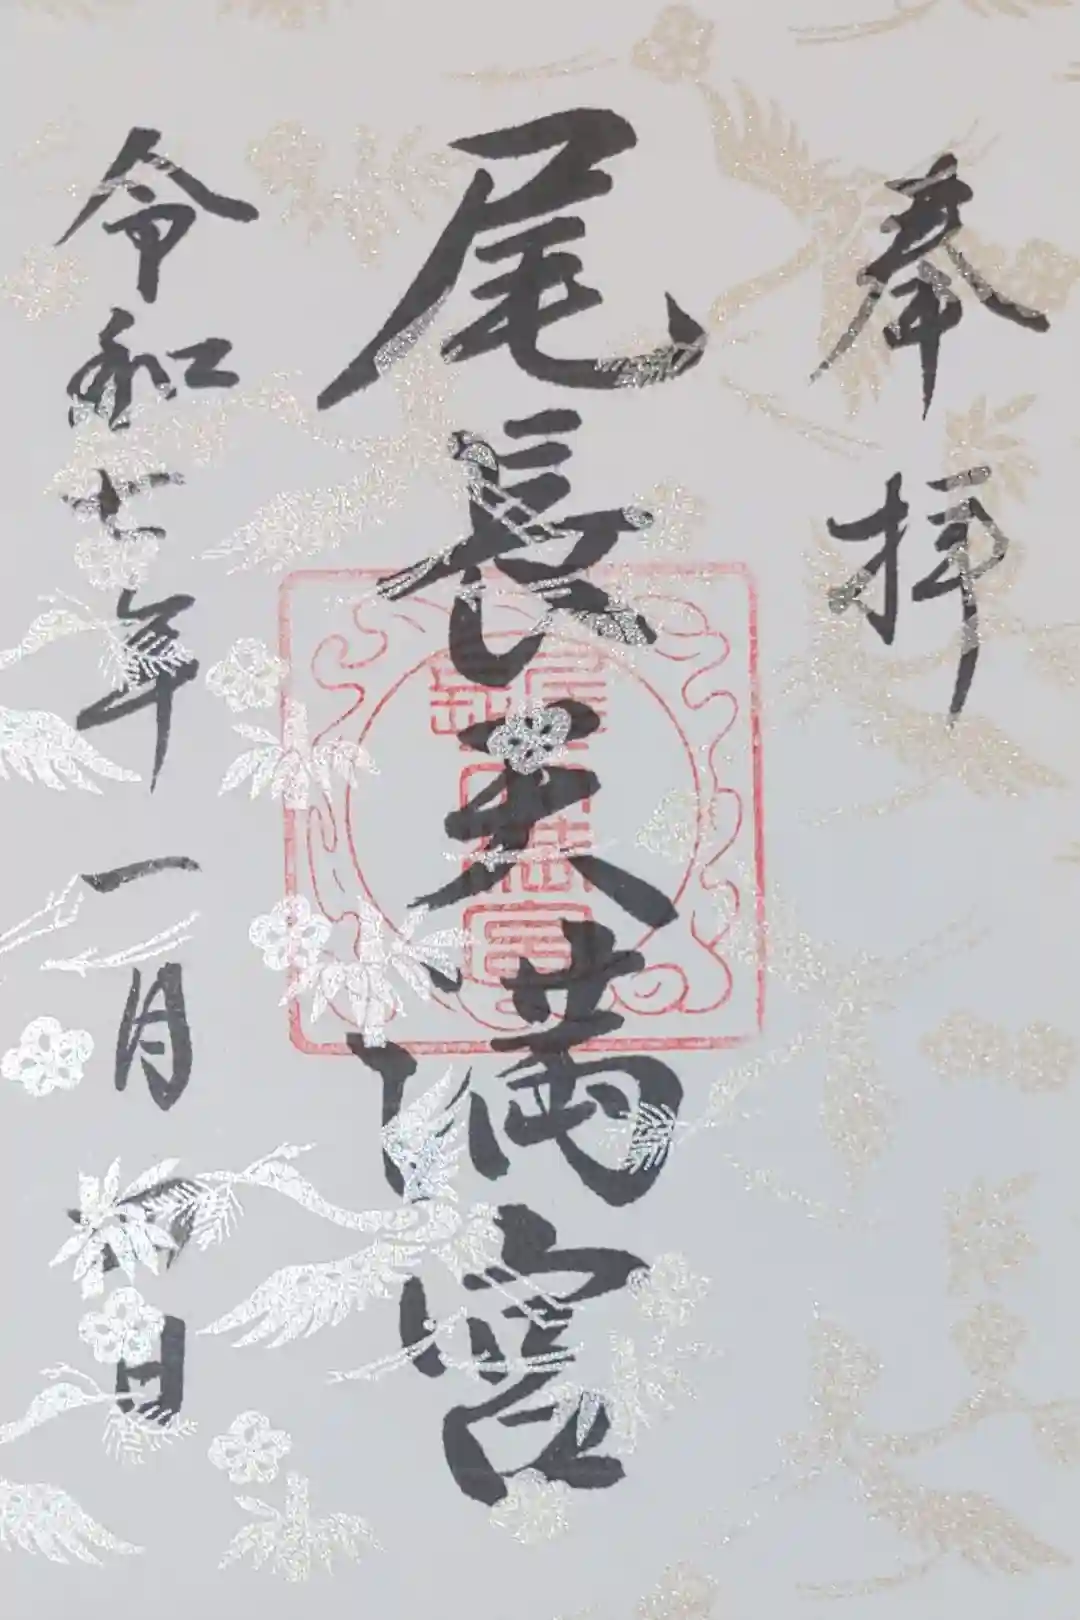 奉拝
尾長天満宮
令和七年一月八日